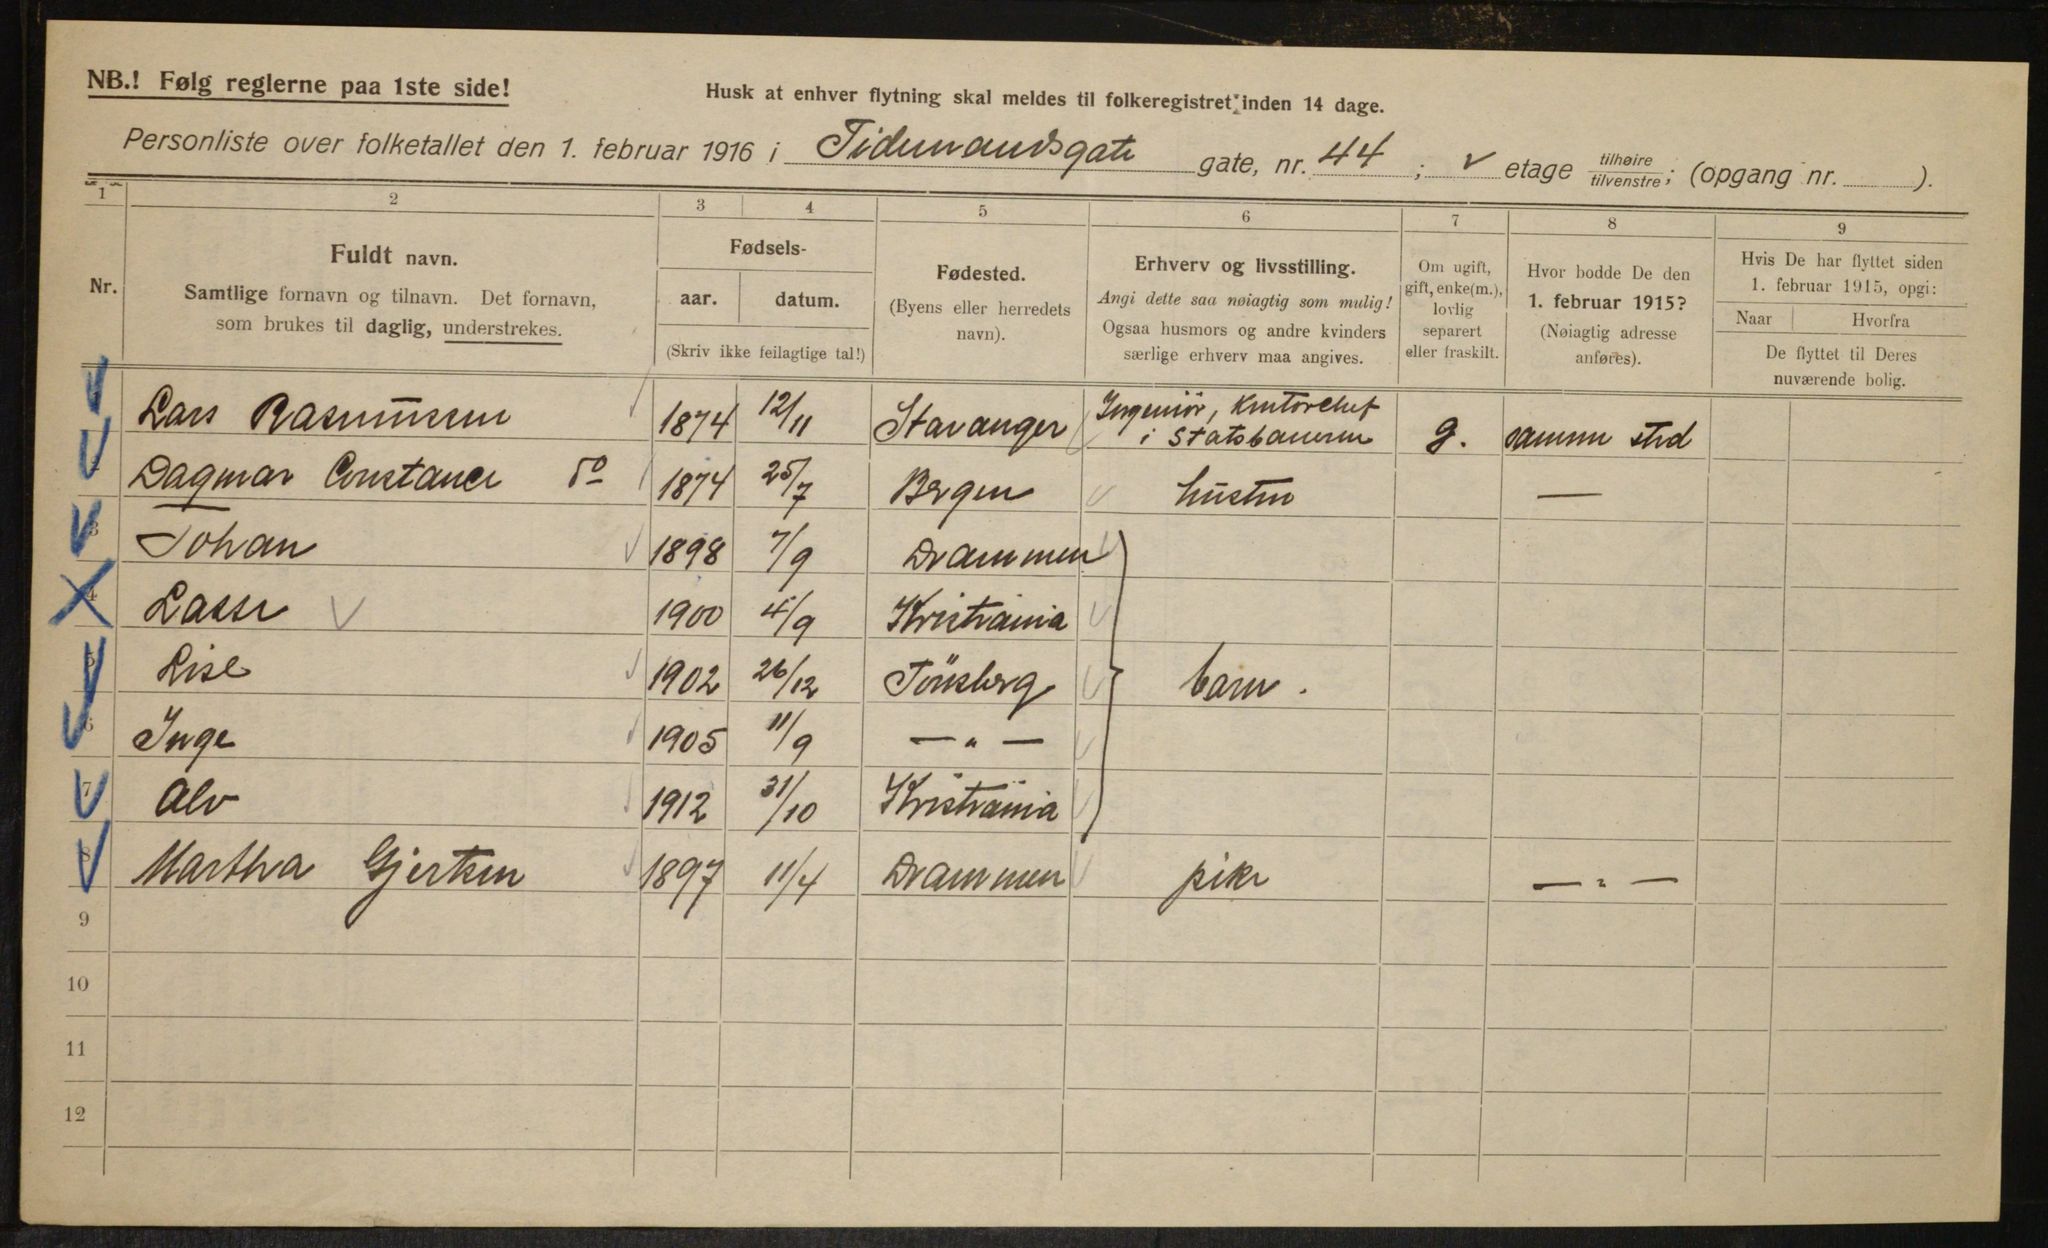 NB.! Følg reglerne paa 1ste side!
Husk at enhver flytning skal meldes til folkeregistret inden 14 dage.
Personliste over folketallet den 1. februar 1916 i Tidemandsgate gate, nr. 44; v etage tilhøire/tilvenstre; (opgang nr. ).
1 2 3 4 5 6 7 8 9
Nr.
Fuldt navn.
Samtlige fornavn og tilnavn. Det fornavn,
som brukes til daglig, understrekes.
Fødsels-
aar. datum.
(Skriv ikke feilagtige tal!)
Fødested.
(Byens eller herredets
navn).
Erhverv og livsstilling.
Angi dette saa nøiagtig som mulig!
Ogsaa husmors og andre kvinders
særlige erhverv maa angives.
Om ugift,
gift, enke(m.),
lovlig
separert
eller fraskilt.
Hvor bodde De den
1. februar 1915?
(Nøiagtig adresse
anføres).
Hvis De har flyttet siden
1. februar 1915, opgi:
Naar Hvorfra
De flyttet til Deres
nuværende bolig.
Lars Rasmussen 1874 12/11 Stavanger Ingeniör, kontorchef i Statsbanerne g. samme sted
Dagmar Constance do 1874 25/7 Bergen hustru —
3 Johan 1898 7/9 Drammen
4 Lasse 1900 4/9 Kristiania
5 Lise 1902 26/12 Tönsberg barn.
6 Inge 1905 11/9 — " —
7 Alv 1912 31/10 Kristiania
8 Martha Gjertsen 1897 11/4 Drammen pike — " —
9
10
11
12